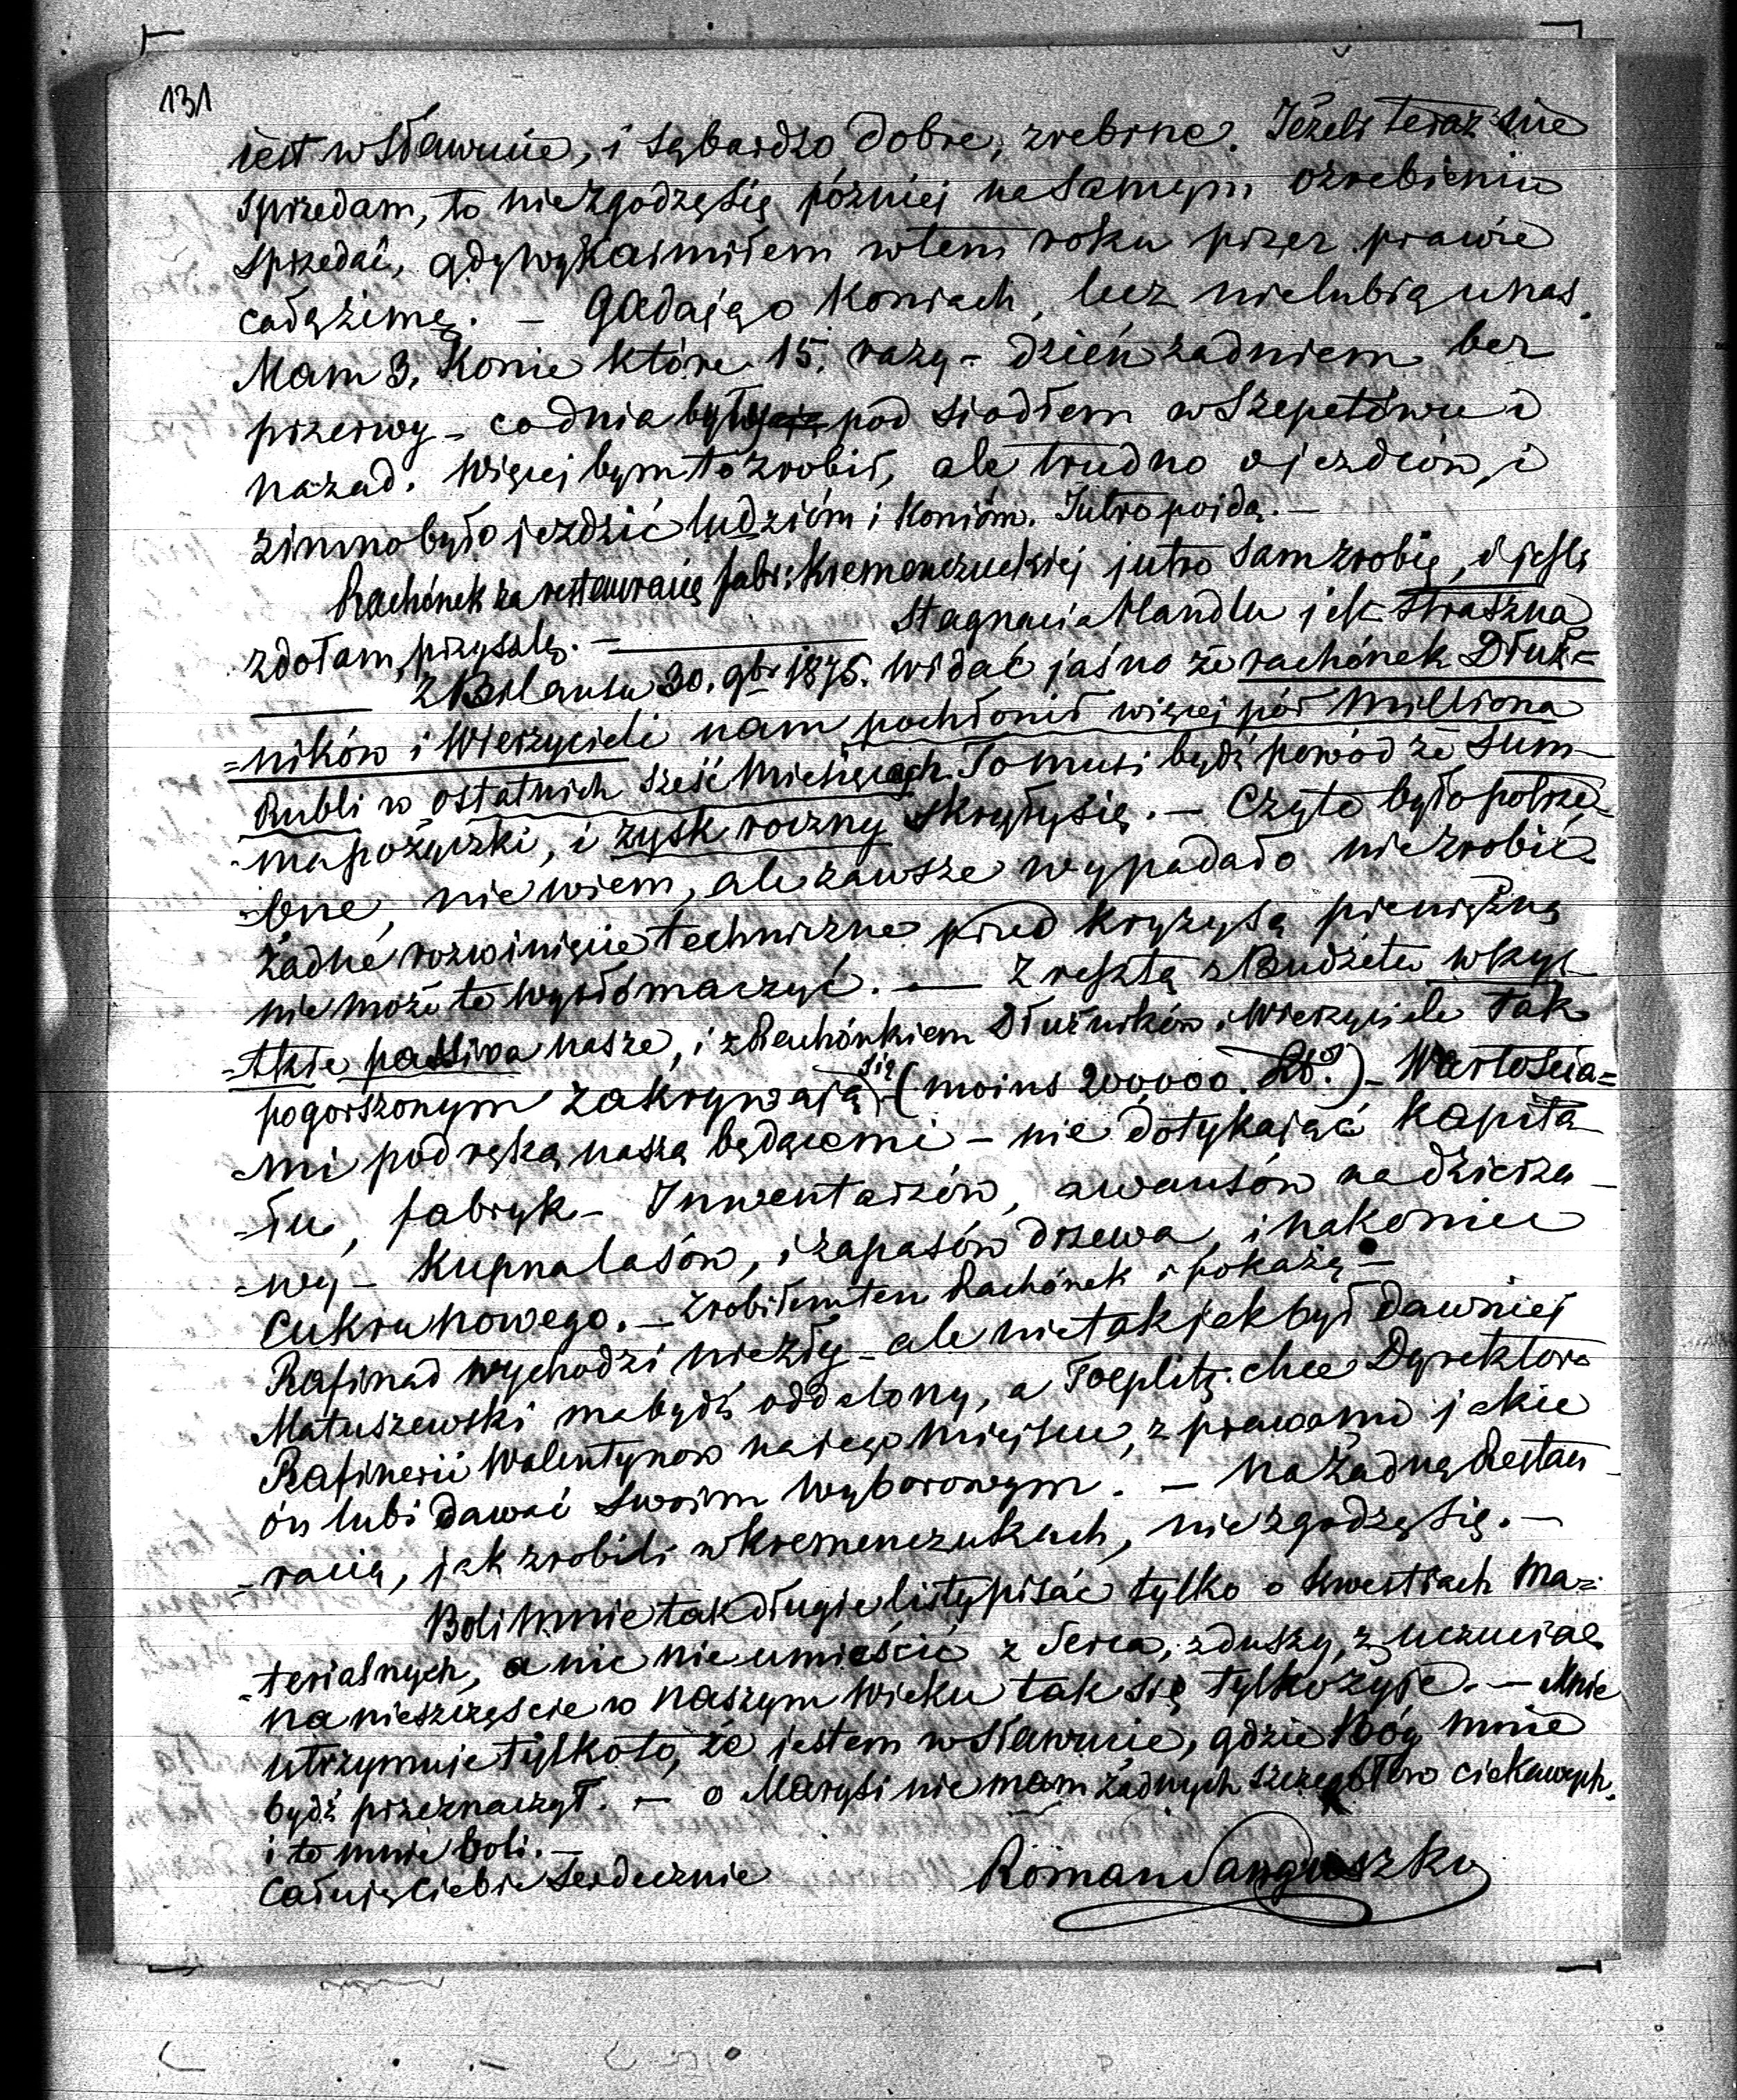 131
iest w Sławucie, i są bardzo dobre, zrebrne. Jeżeli teraz nie
sprzedam, to nie zgodzę się później na samym ozrebieniu
sprzedać, gdy wykarmiłem w tem roku przez prawie
całą zimę. — Gadają o Koniach, lecz nie lubią u nas.
Mam 3. Konie które 15. razy – dzień za dniem bez
przerwy – co dnia były pod siodłem w Szepetówce i
nazad. Więcej bym to zrobił, ale trudno o jezdców, i
zimno było jezdzić ludzióm i Konióm. Jutro poidą. —
Rachónek za restauracię fabr: Kremenczuckiej jutro sam zrobię, i jeśli
zdołam, przyszlę. — Stagnacia Handlu jest straszna
z Bilansu 30. 9br 1875. widać jaśno że rachónek Dłuż=
=ników i Wierzycieli nam pochłonił więcej pół Milliona
Rubli w ostatnich sześć Miesięcach. To musi bydź powód że Sum-
-ma pożyczki, i zysk roczny skryły się. — Czy to było potrze-
-bne, nie wiem, ale zawsze wypadało nie zrobić
żadne rozwinięcie techniczne przed kryzysą pieniężną
nie może to wytłómaczyć. — Zresztą z Budżetu wszys-
-tkie passiva nasze, i z Rachónkiem Dłużników i Wierzyciele tak
pogorszonym zakrywają się (moins 200,000. Rb.) – Wartościa=
-mi pod ręką naszą będącemi – nie dotykając kapita-
-łu, fabryk – Inwentarzów, awansów na dzierża-
=wy – kupna lasów, i zapasów drzewa, i nakoniec
Cukru nowego. — Zrobiłem ten Rachónek i pokażę —
Rafinad wychodzi niezły – ale nie tak jak był dawniej
Matuszewski ma bydź oddalony, a Toeplitz chce Dyrektora
Rafinerii Walentynow na jego miejscu, z prawami jakie
ón lubi dawać swoim wyborowym. — Na żadną Restau-
-racią, jak zrobili w Kremenczukach, nie zgodzę się. —
Boli mnie tak długie listy pisać tylko o kwestiach Ma=
-terialnych, a nic nie umieścić z serca, z duszy, z uczucia
na nieszczęście w naszym wieku tak się tylko żyje. — Mnie
utrzymuje tylko to, że jestem w Sławucie, gdzie Bóg mnie
bydź przeznaczył. — o Marysi nie mam żadnych szczegółów ciekawych.
i to mnie boli. —
Całuję Ciebie Serdecznie
Roman Sanguszko